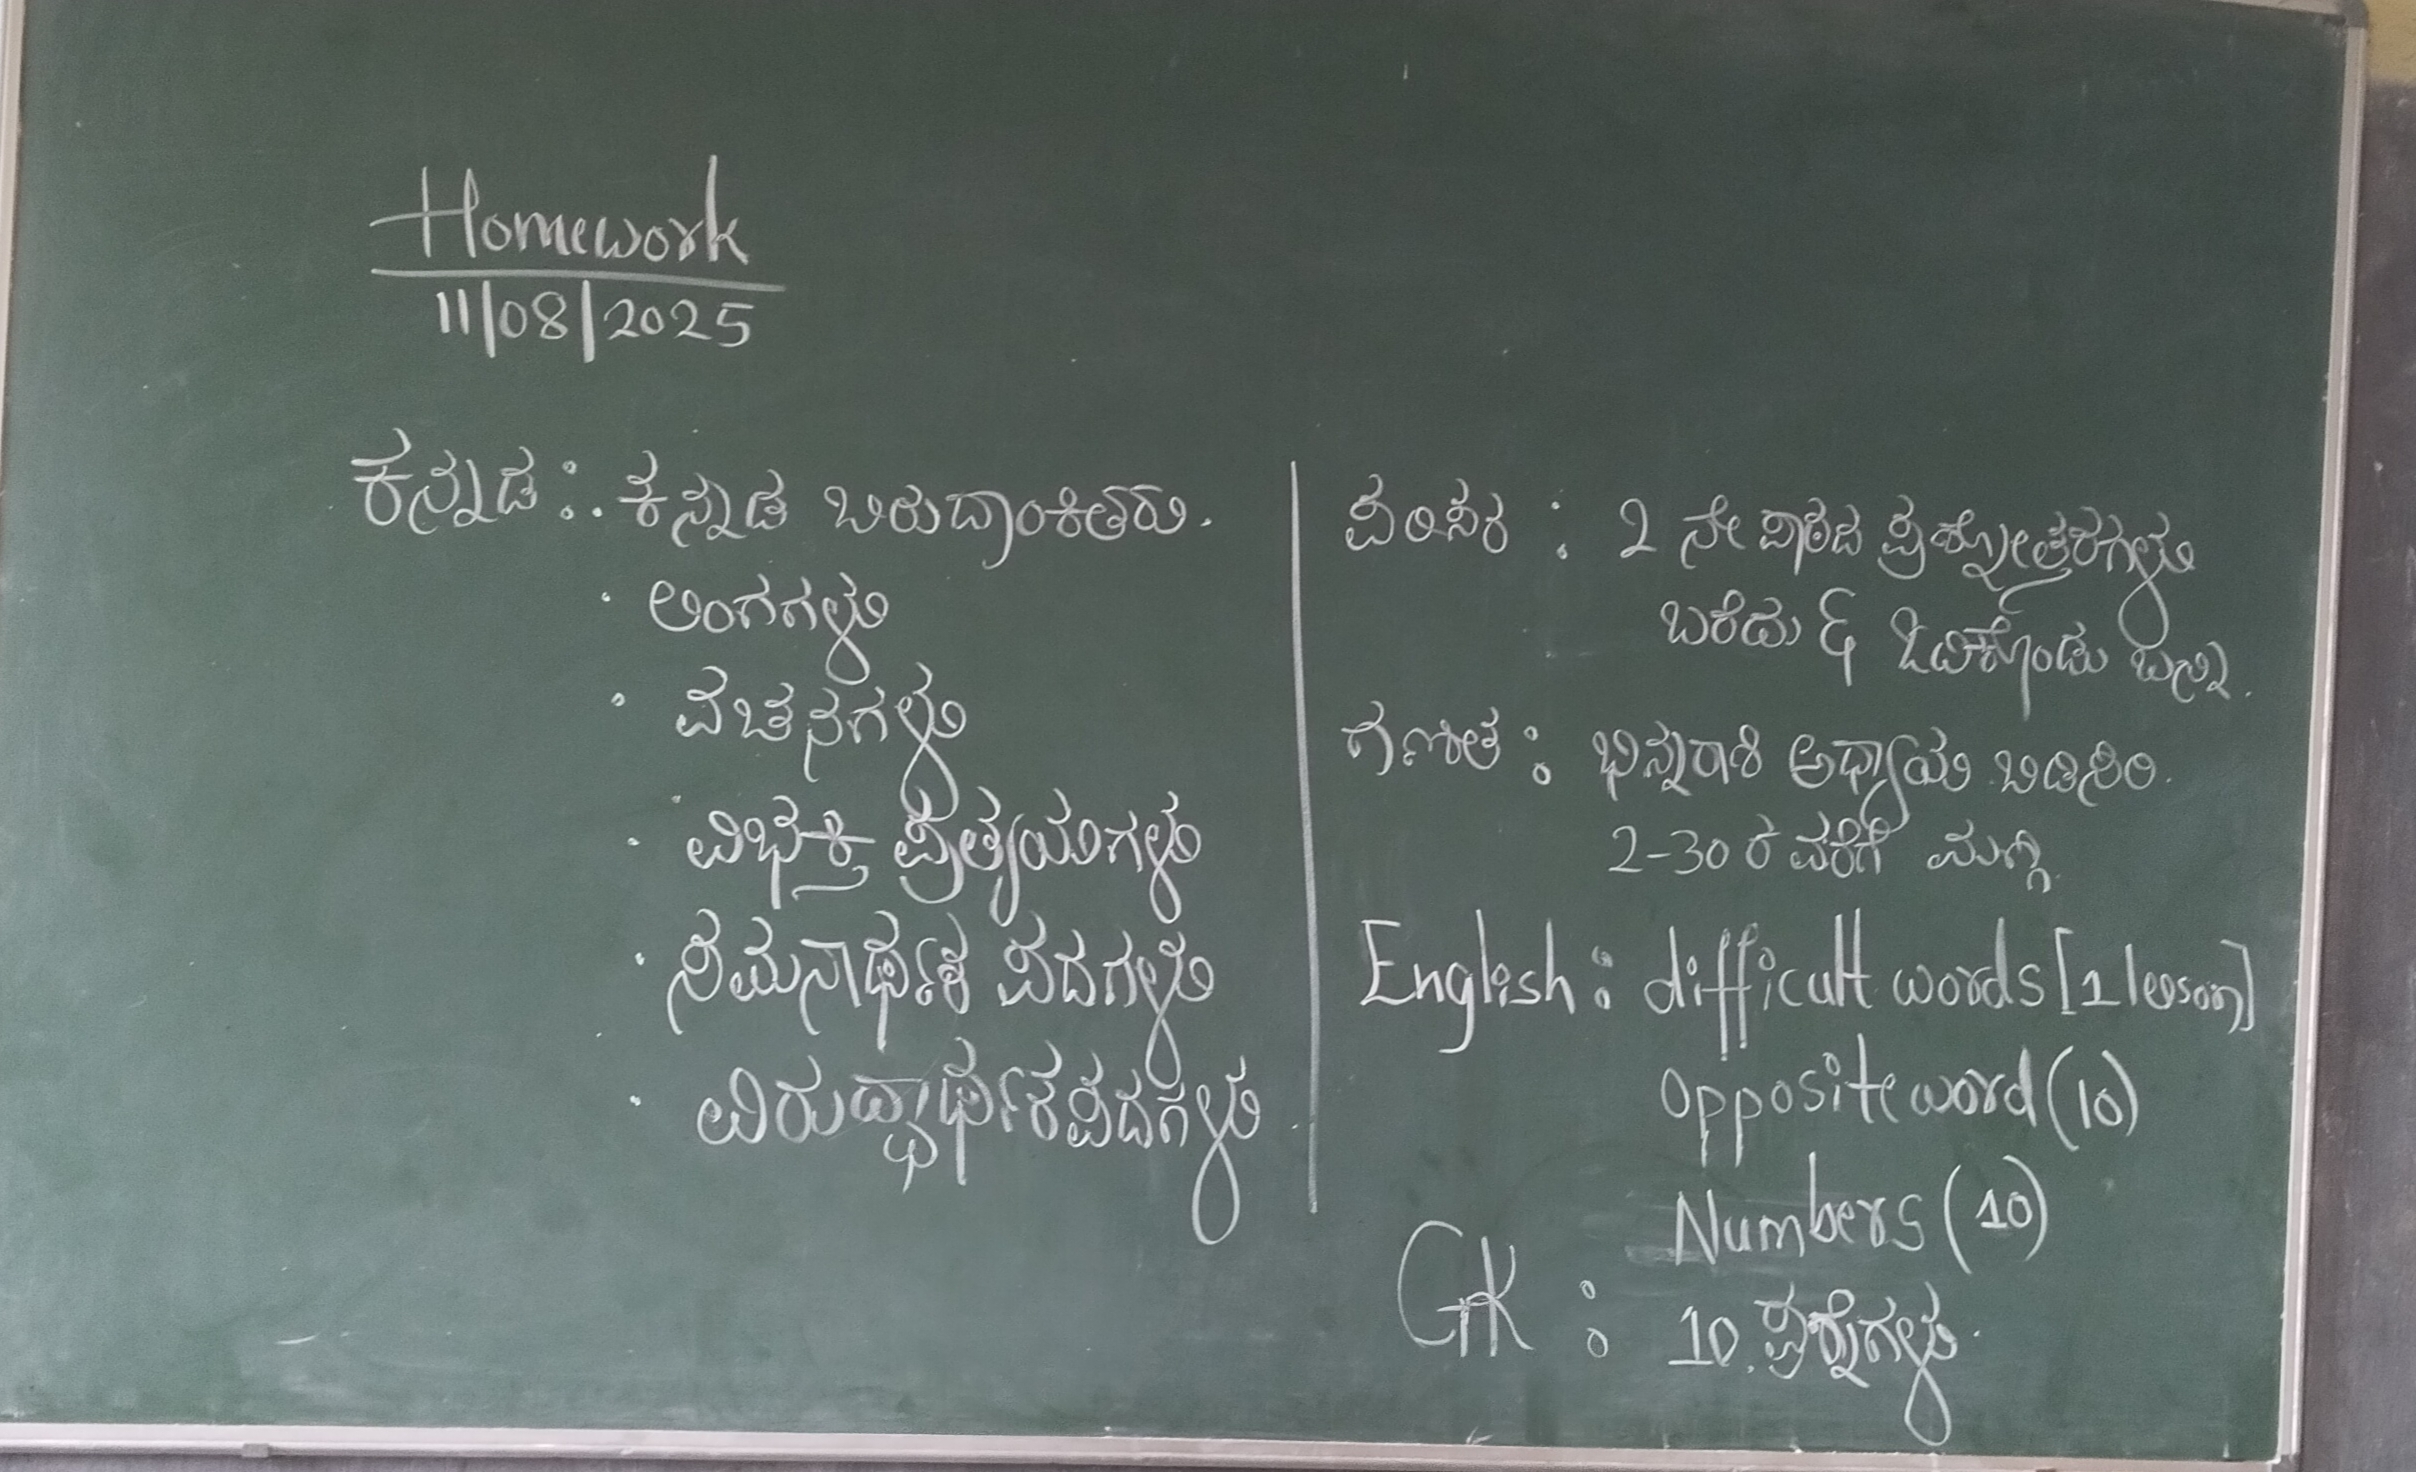 Homework
11/08/2025
ಕನ್ನಡ : . ಕನ್ನಡ ಬಿರುದಾಂಕಿತರು.
· ಲಿಂಗಗಳು
· ವಚನಗಳು
· ವಿಭಕ್ತಿ ಪ್ರತ್ಯಯಗಳು
· ಸಮನಾರ್ಥಕ ಪದಗಳು
· ವಿರುದ್ಧಾರ್ಥಕಪದಗಳು.
ಪರಿಸರ : 2 ನೇ ಪಾಠದ ಪ್ರಶ್ನೋತ್ತರಗಳು
ಬರೆದು & ಓದಿಕೊಂಡು ಬನ್ನಿ.
ಗಣಿತ : ಭಿನ್ನರಾಶಿ ಅಧ್ಯಾಯ ಬಿಡಿಸಿರಿ.
2-30 ರ ವರೆಗೆ ಮಗ್ಗಿ.
English : difficult words [1 lesson]
Opposite word (10)
Numbers (10)
GK : 10. ಪ್ರಶ್ನೆಗಳು.